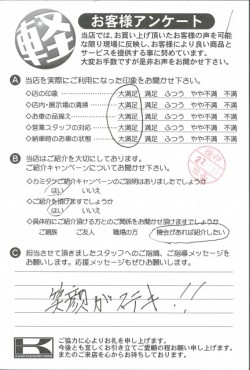 軽
お客様アンケート
当店では、お買い上げ頂いたお客様の声を可能
な限り現場に反映し、お客様により良い商品と
サービスを提供する事に努めています。
大変お手数ですが是非お声をお聞かせ下さい。
A 当店を実際にご利用になった印象をお聞かせ下さい。
◇店の印象 大満足 満足 ふつう やや不満 不満
◇店内・展示場の清掃 大満足 満足 ふつう やや不満 不満
◇お車の品揃え 大満足 満足 ふつう やや不満 不満
◇営業スタッフの対応 大満足 満足 ふつう やや不満 不満
◇納車時のお車の状態 大満足 満足 ふつう やや不満 不満
B 当店はご紹介を大切にしております。
ご紹介キャンペーンについてお聞かせ下さい。
◇カミタケご紹介キャンペーンのご説明はありましたでしょうか
はい いいえ
◇ご紹介頂けますでしょうか
はい いいえ
◇具体的にご紹介頂ける方とのご関係をお聞かせ頂けますでしょうか
ご親族 ご友人 職場の方 機会があれば紹介したい
C 担当させて頂きましたスタッフへのご指摘、ご指導メッセージを
お願いします。応援メッセージもぜひお願いします。
笑顔がステキ!!
K
ご協力に心よりお礼を申し上げます。
今後とも宜しくお引き立てご愛顧の程お願い申し上げます。
またのご来店を心からお待ちしております。